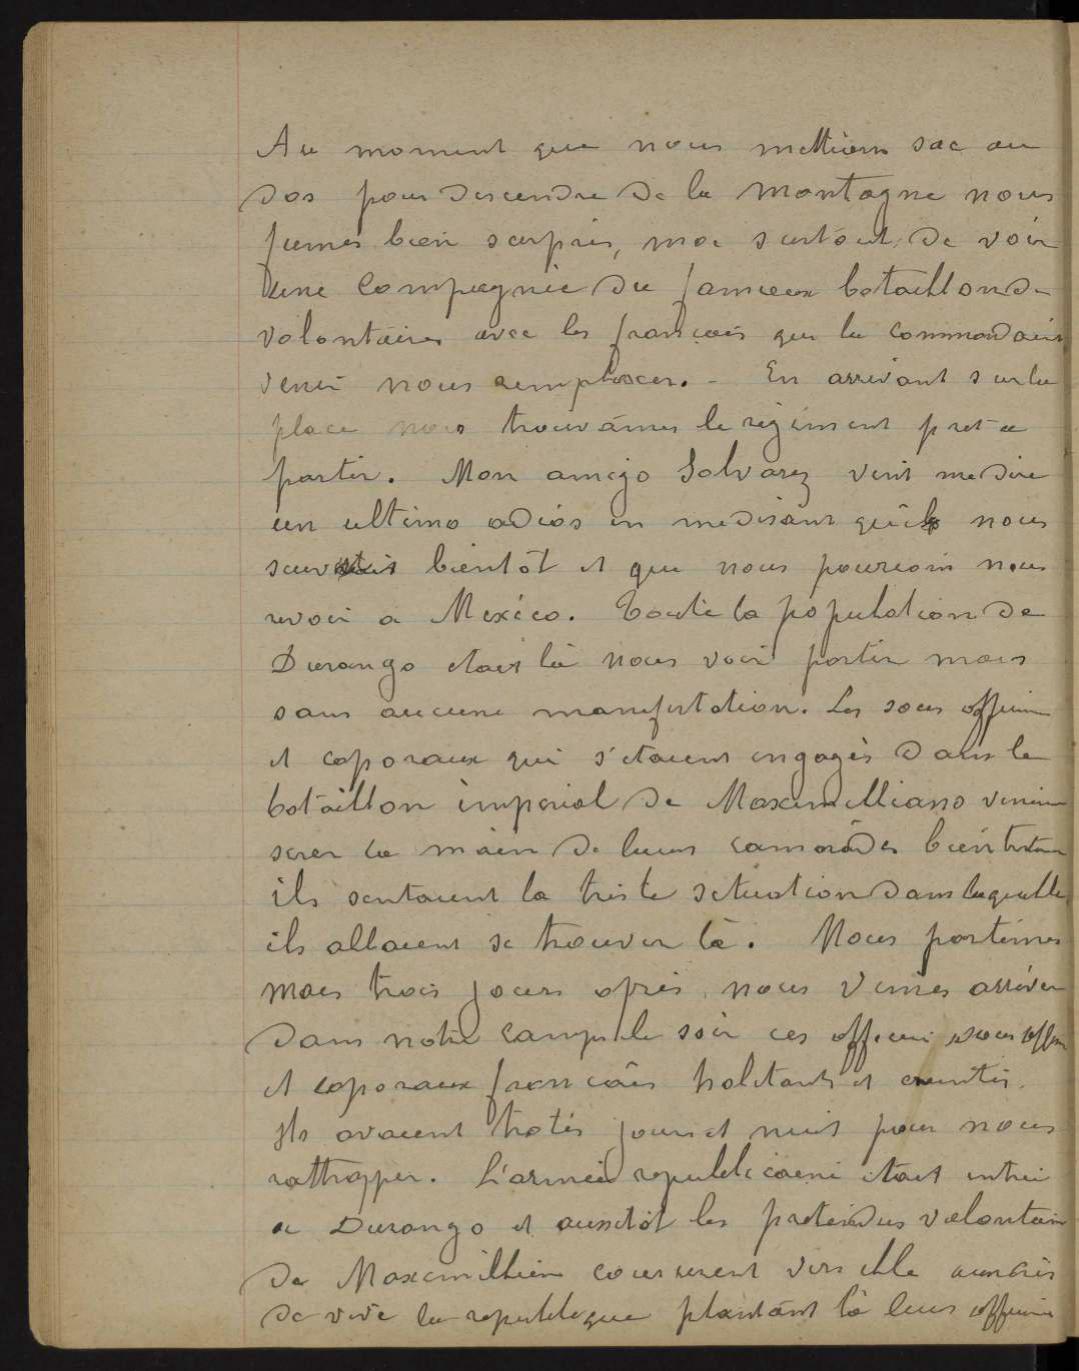 Au moment que nous mettions sac au
dos pour descendre de la montagne nous
fumes bien surpris, moi surtout, de voir
une Compagnie du fameux bataillon de
volontaires avec les français qui la commandait
venir nous remplacer. - En arrivant sur la
place nous trouvâmes le régiment pret a
partir. Mon amigo Salvarez vint me dire
un ultimo adios en me disant qu'ils nous
bientôt et que nous pourrions nous
revoir a Mexico. Toute la population de
Durango etait là nous voir partir mais
sans aucune manifestation. Les sous officiers
et caporaux qui s'etaient engagés dans le
bataillon imperial de Maximilliano vinrent
serer la main de leurs camarades bien tristes
ils sentaient la triste situation dans laquelle
ils allaient se trouver là. Nous partimes
mais trois jours apres, nous vimes arriver
dans notre camp le soir ces officiers sous offi
et caporaux francais haletants et ereintés.
Ils avaient trotés jour et nuit pour nous
rattrapper. L'armée republicaine etait entrée
a Durango et aussitôt les pretendus volontaires
de Maximillien coururent vers elle aux cris
de vive la republique plantant là leurs officiers